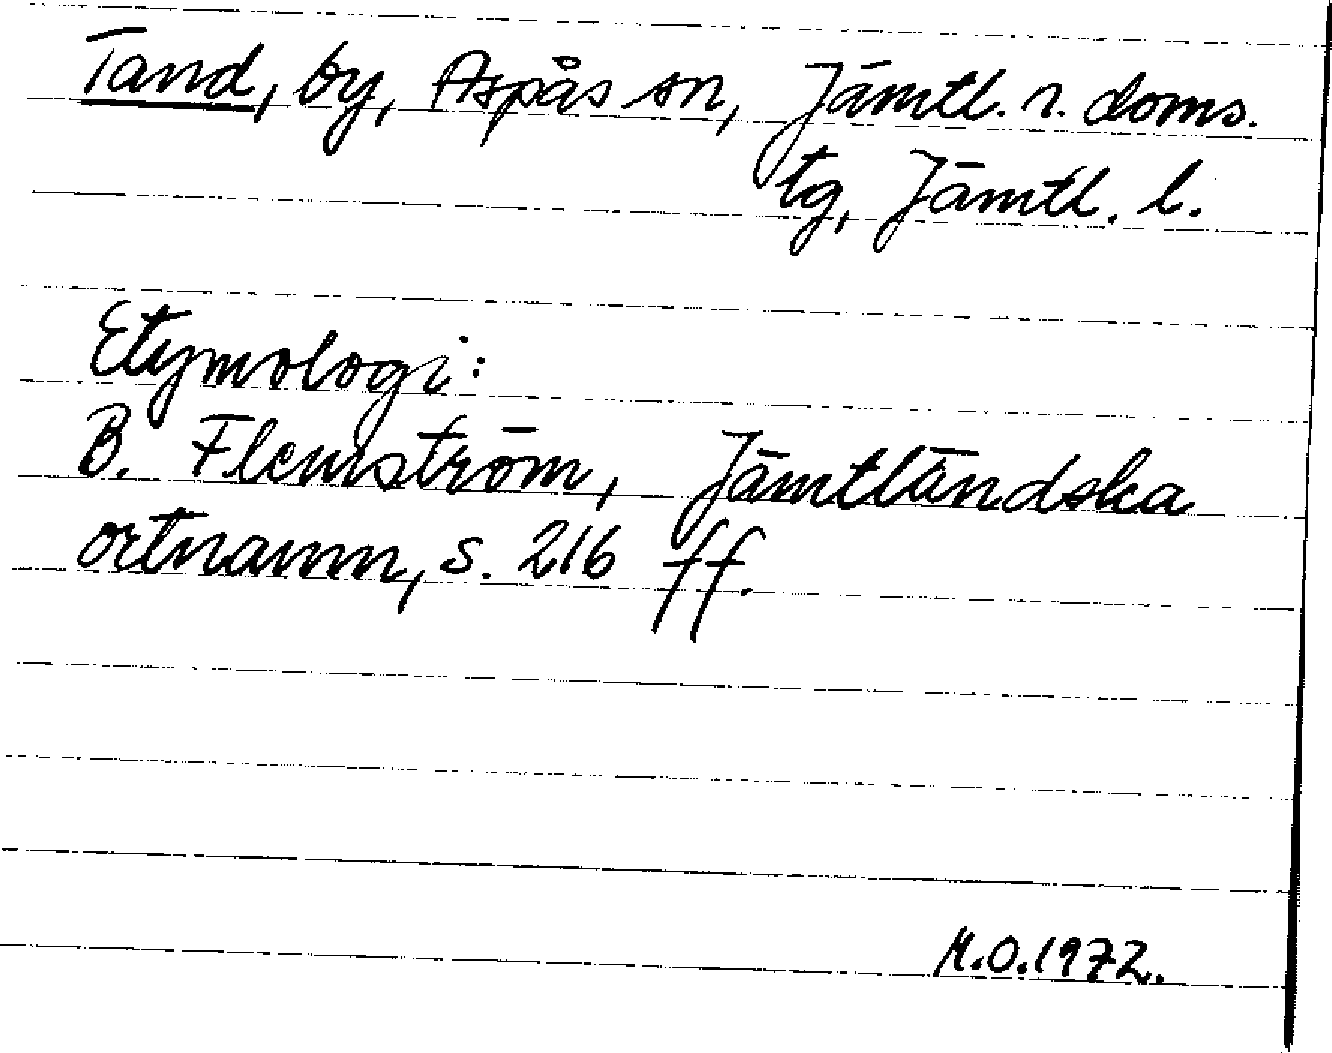 Tand, by, Aspås sn, Jämtl. n. doms.
tg, Jämtl. l.
Etymologi:
B. Flemström, Jämtländska
ortnamn, s. 216 ff.
M.O.1972.